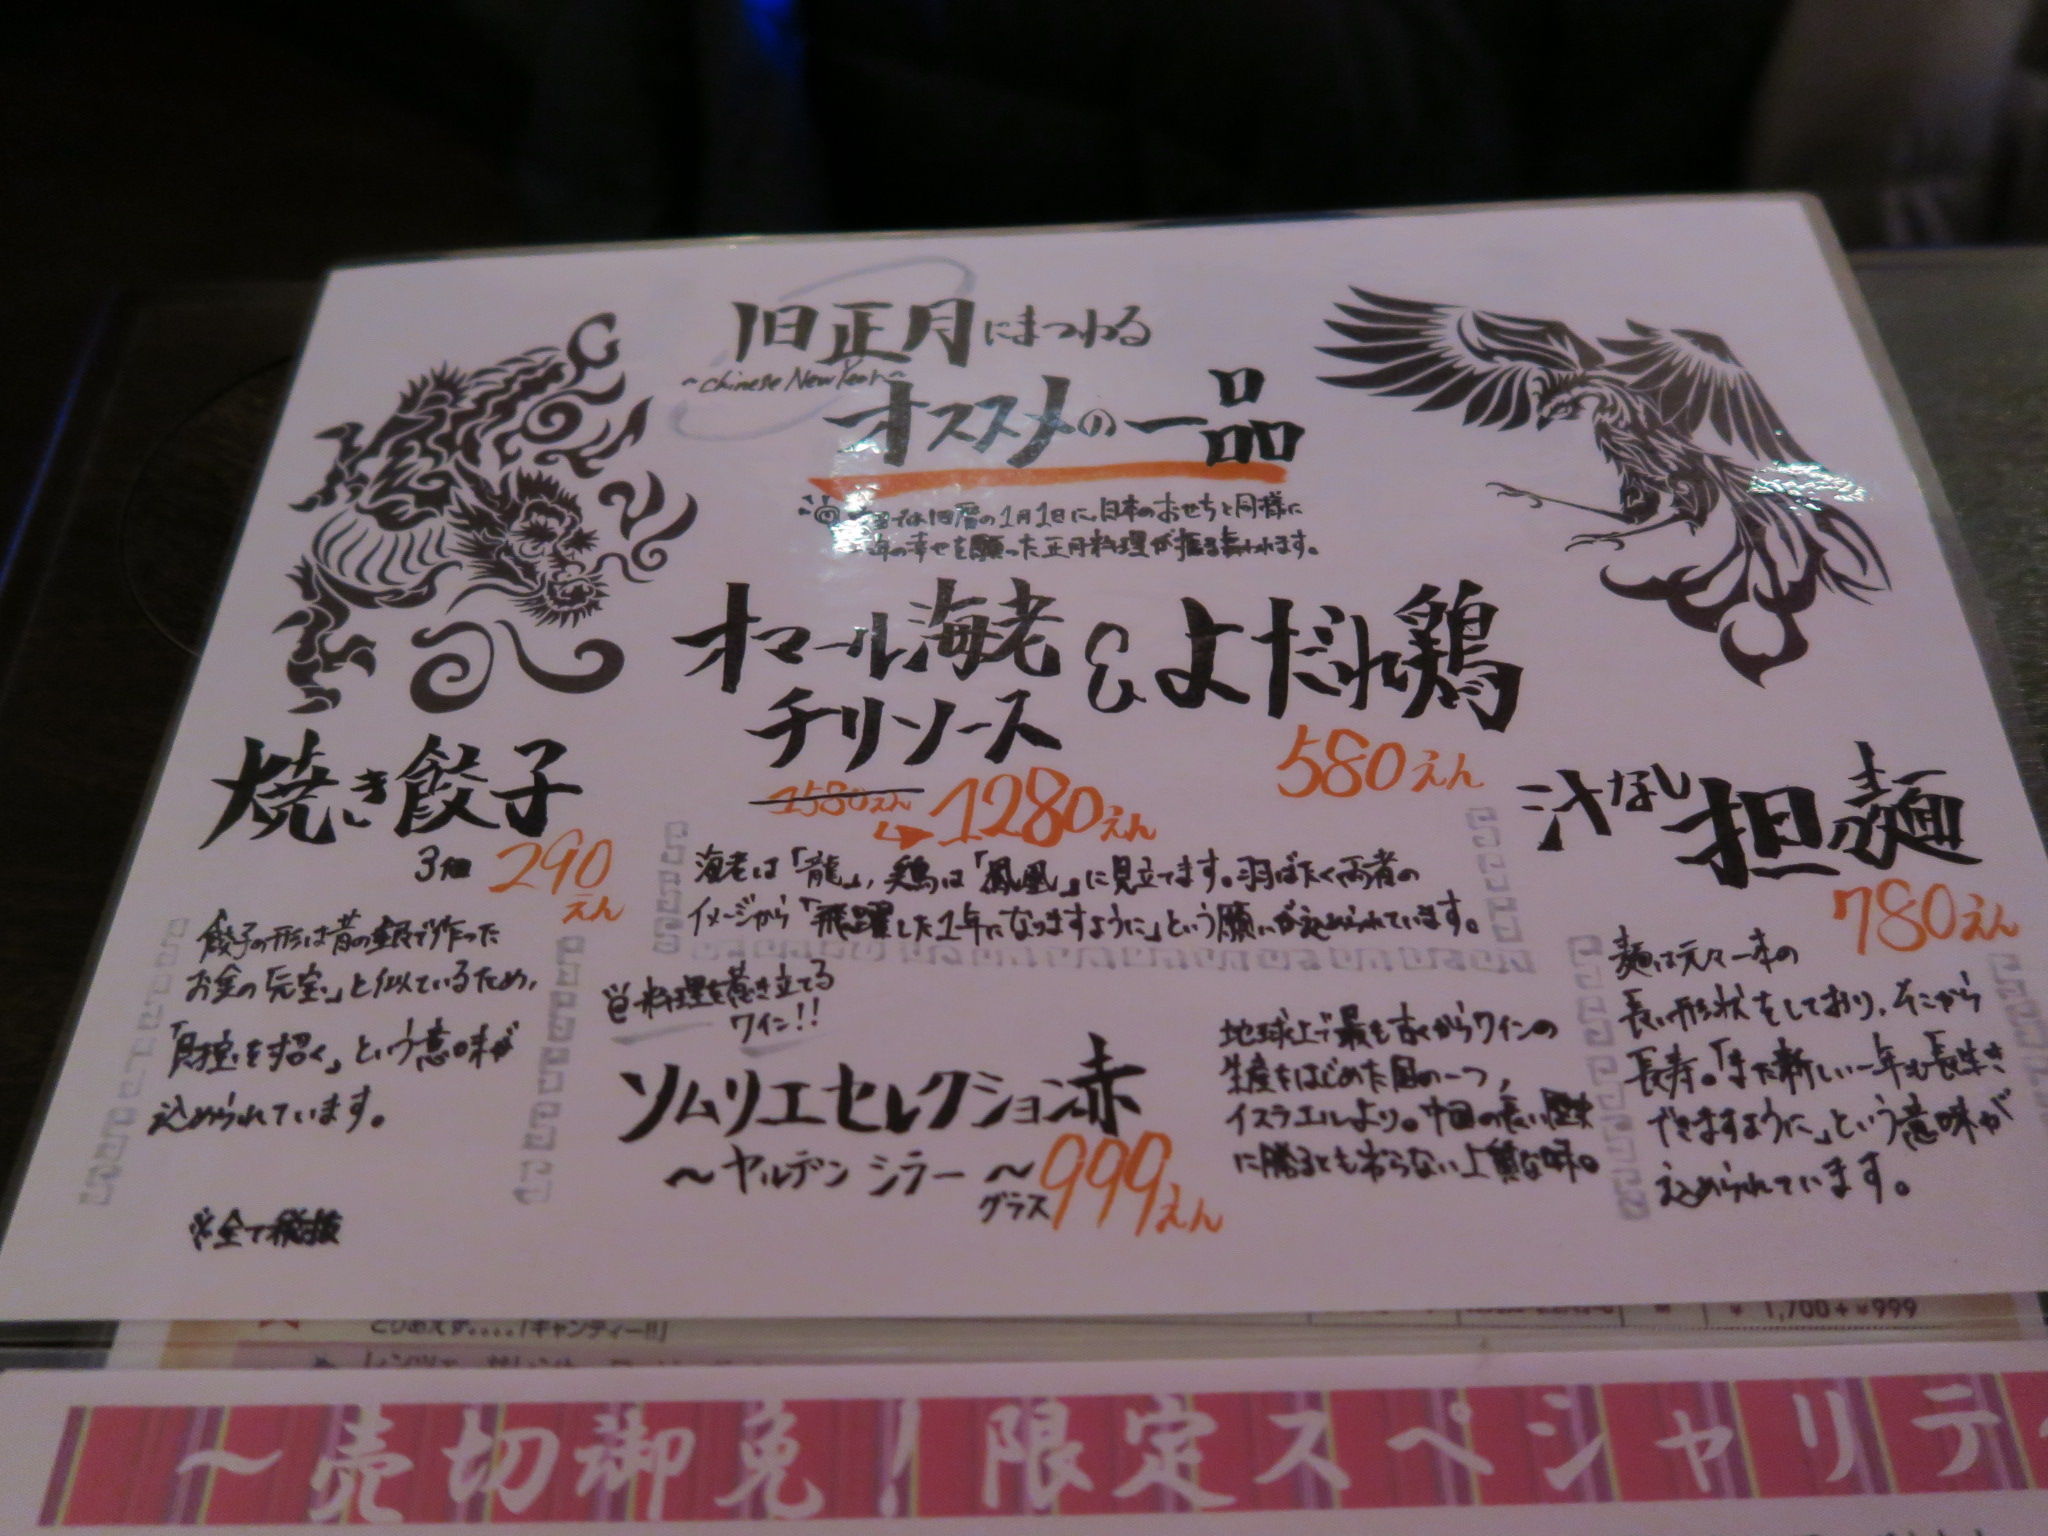 旧正月にまつわる
~Chinese New Year~
オススメの一品
では旧暦の1月1日に、日本のおせちと同様に
年の幸せを願った正月料理が振る舞われます。
オマール海老
チリソース
1580えん
1280えん
&
よだれ鶏
580えん
海老は「龍」、鶏は「鳳凰」に見立てます。羽ばたく両者の
イメージから「飛躍した1年になりますように」という願いが込められています。
焼き餃子
3個 290えん
餃子の形は昔の銀で作った
お金の「元宝」と似ているため、
「財宝を招く」という意味が
込められています。
※全て税抜
お料理を惹き立てる
ワイン!!
ソムリエセレクション赤
〜ヤルデン シラー 〜
グラス 999えん
地球上で最も古くからワインの
生産をはじめた国の一つ、
イスラエルより。中国の長い歴史
に勝るとも劣らない上質な味。
汁なし担麺
780えん
麺は元々一本の
長い形状をしており、そこから
長寿。「また新しい一年も長生き
できますように」という意味が
込められています。
とりあえず....「キャンディー!!」
¥ 1,700+¥999
〜売切御免！限定スペシャリテ